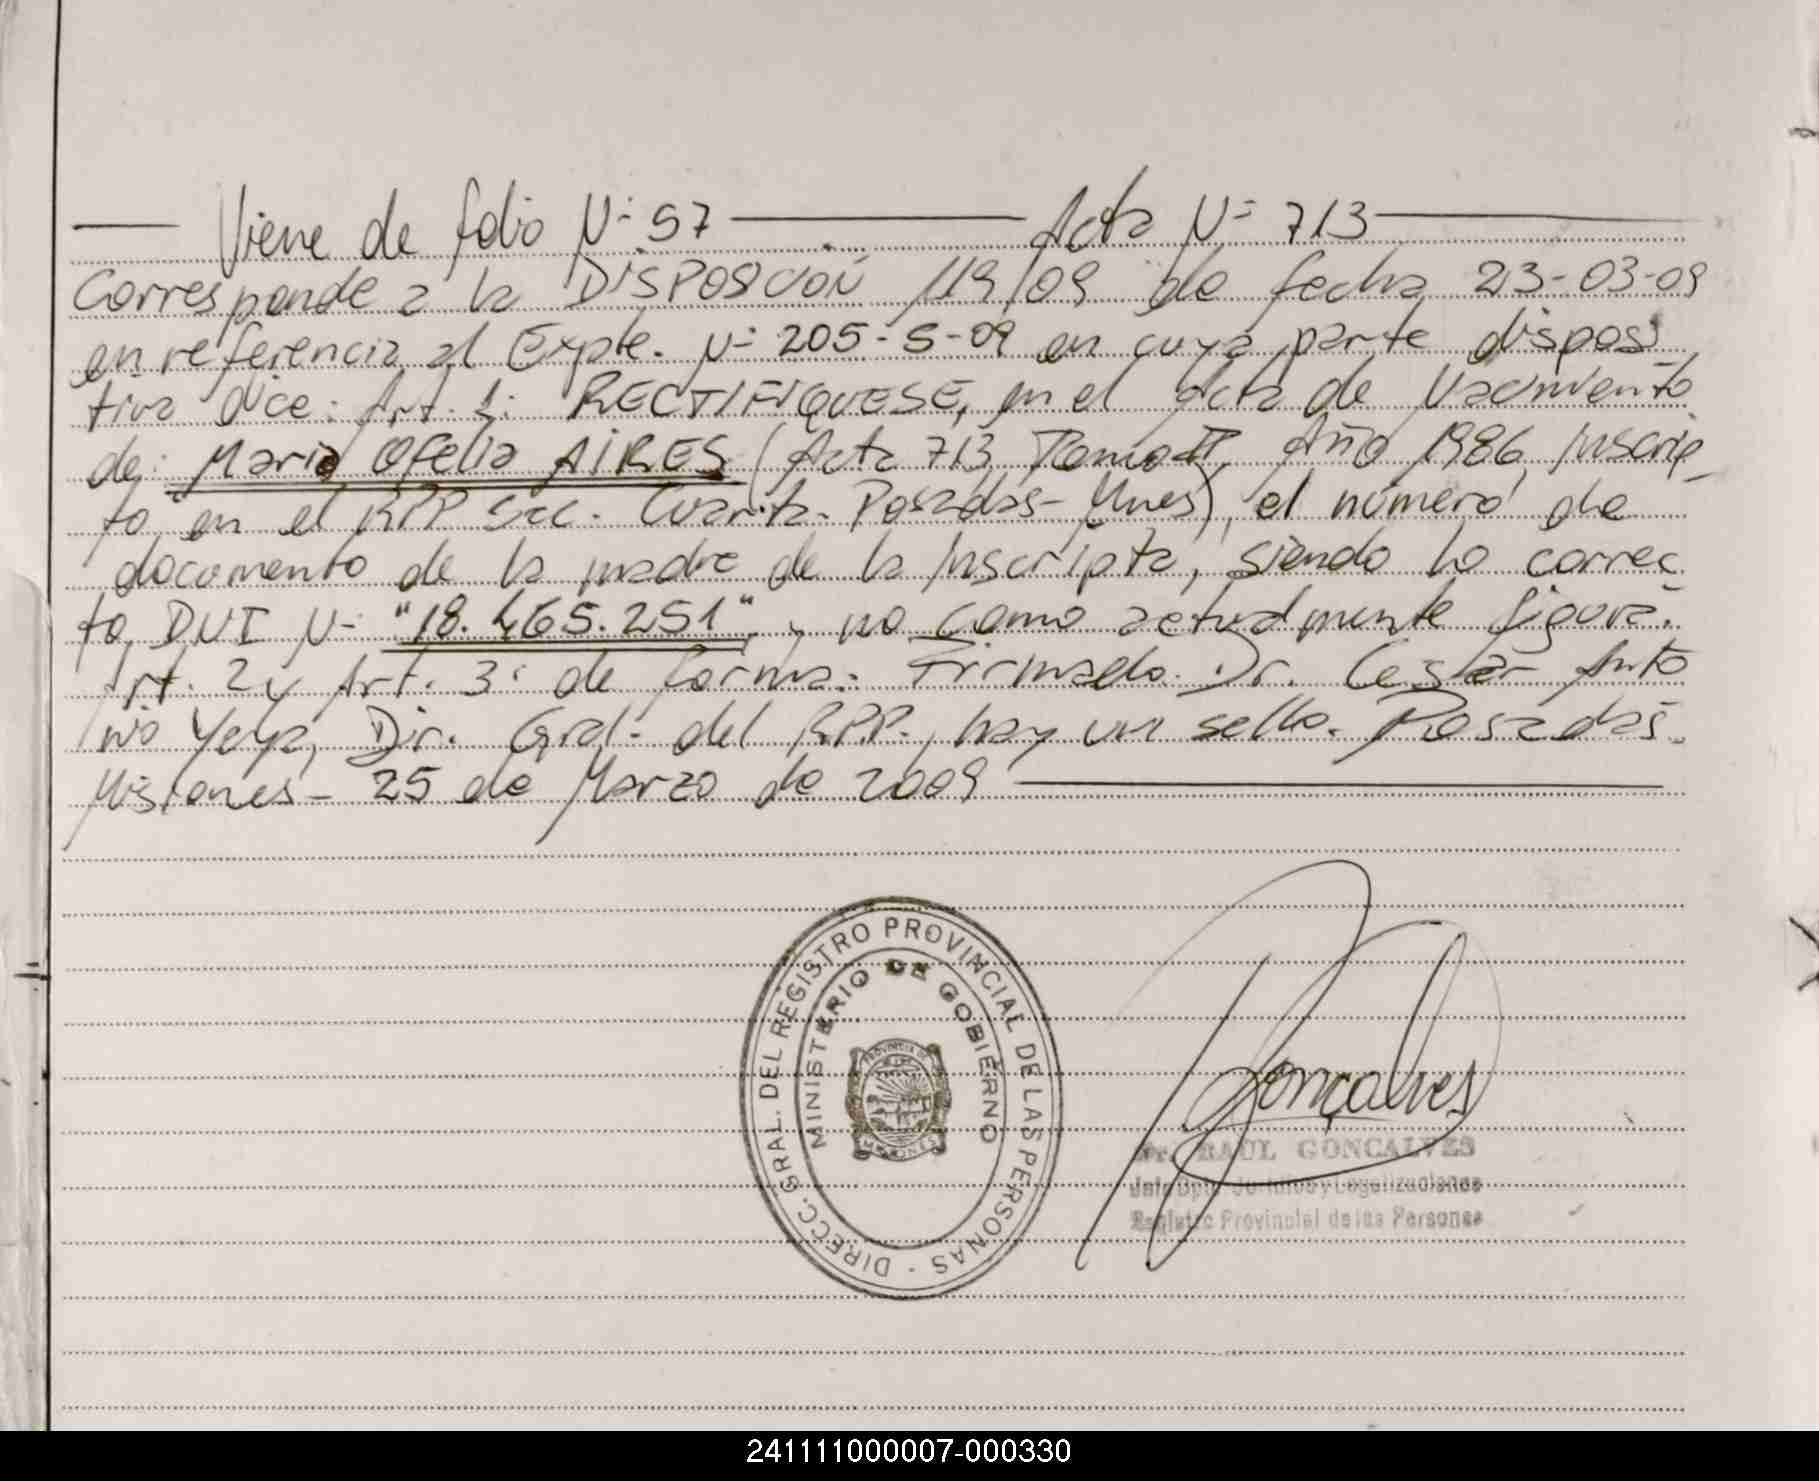 Viene de folio Nº 57 Acta Nº 713
Corresponde a la DISPOSICIÓN 119/09 de fecha 23-03-09
en referencia al Expte. Nº 205-S-09 en cuya parte disposi
tiva dice: Art. 1: RECTIFIQUESE, en el Acta de Nacimiento
de: Maria Ofelia AIRES (Acta 713, Tomo II, Año 1986, Inscrip_
to en el RPP Sec. Cuarta. Posadas-Mnes), el número de
documento de la madre de la Inscripta, siendo lo correc
to DNI Nº "18.465.251", y no como actualmente figura.
Art. 2 y Art. 3º de forma. Firmado. Dr. Cesar Anto
nio Yeya, Dir. Gral. del RPP., hay un sello. Posadas.
Misiones - 25 de Marzo de 2009
DIRECC. GRAL. DEL REGISTRO PROVINCIAL DE LAS PERSONAS -
MINISTERIO DE GOBIERNO
PROVINCIA DE
MISIONES
Gonçalves
Dr. RAUL GONCALVES
Jefe Dpto. Jurídico y Legalizaciones
Registro Provincial de las Personas
241111000007-000330